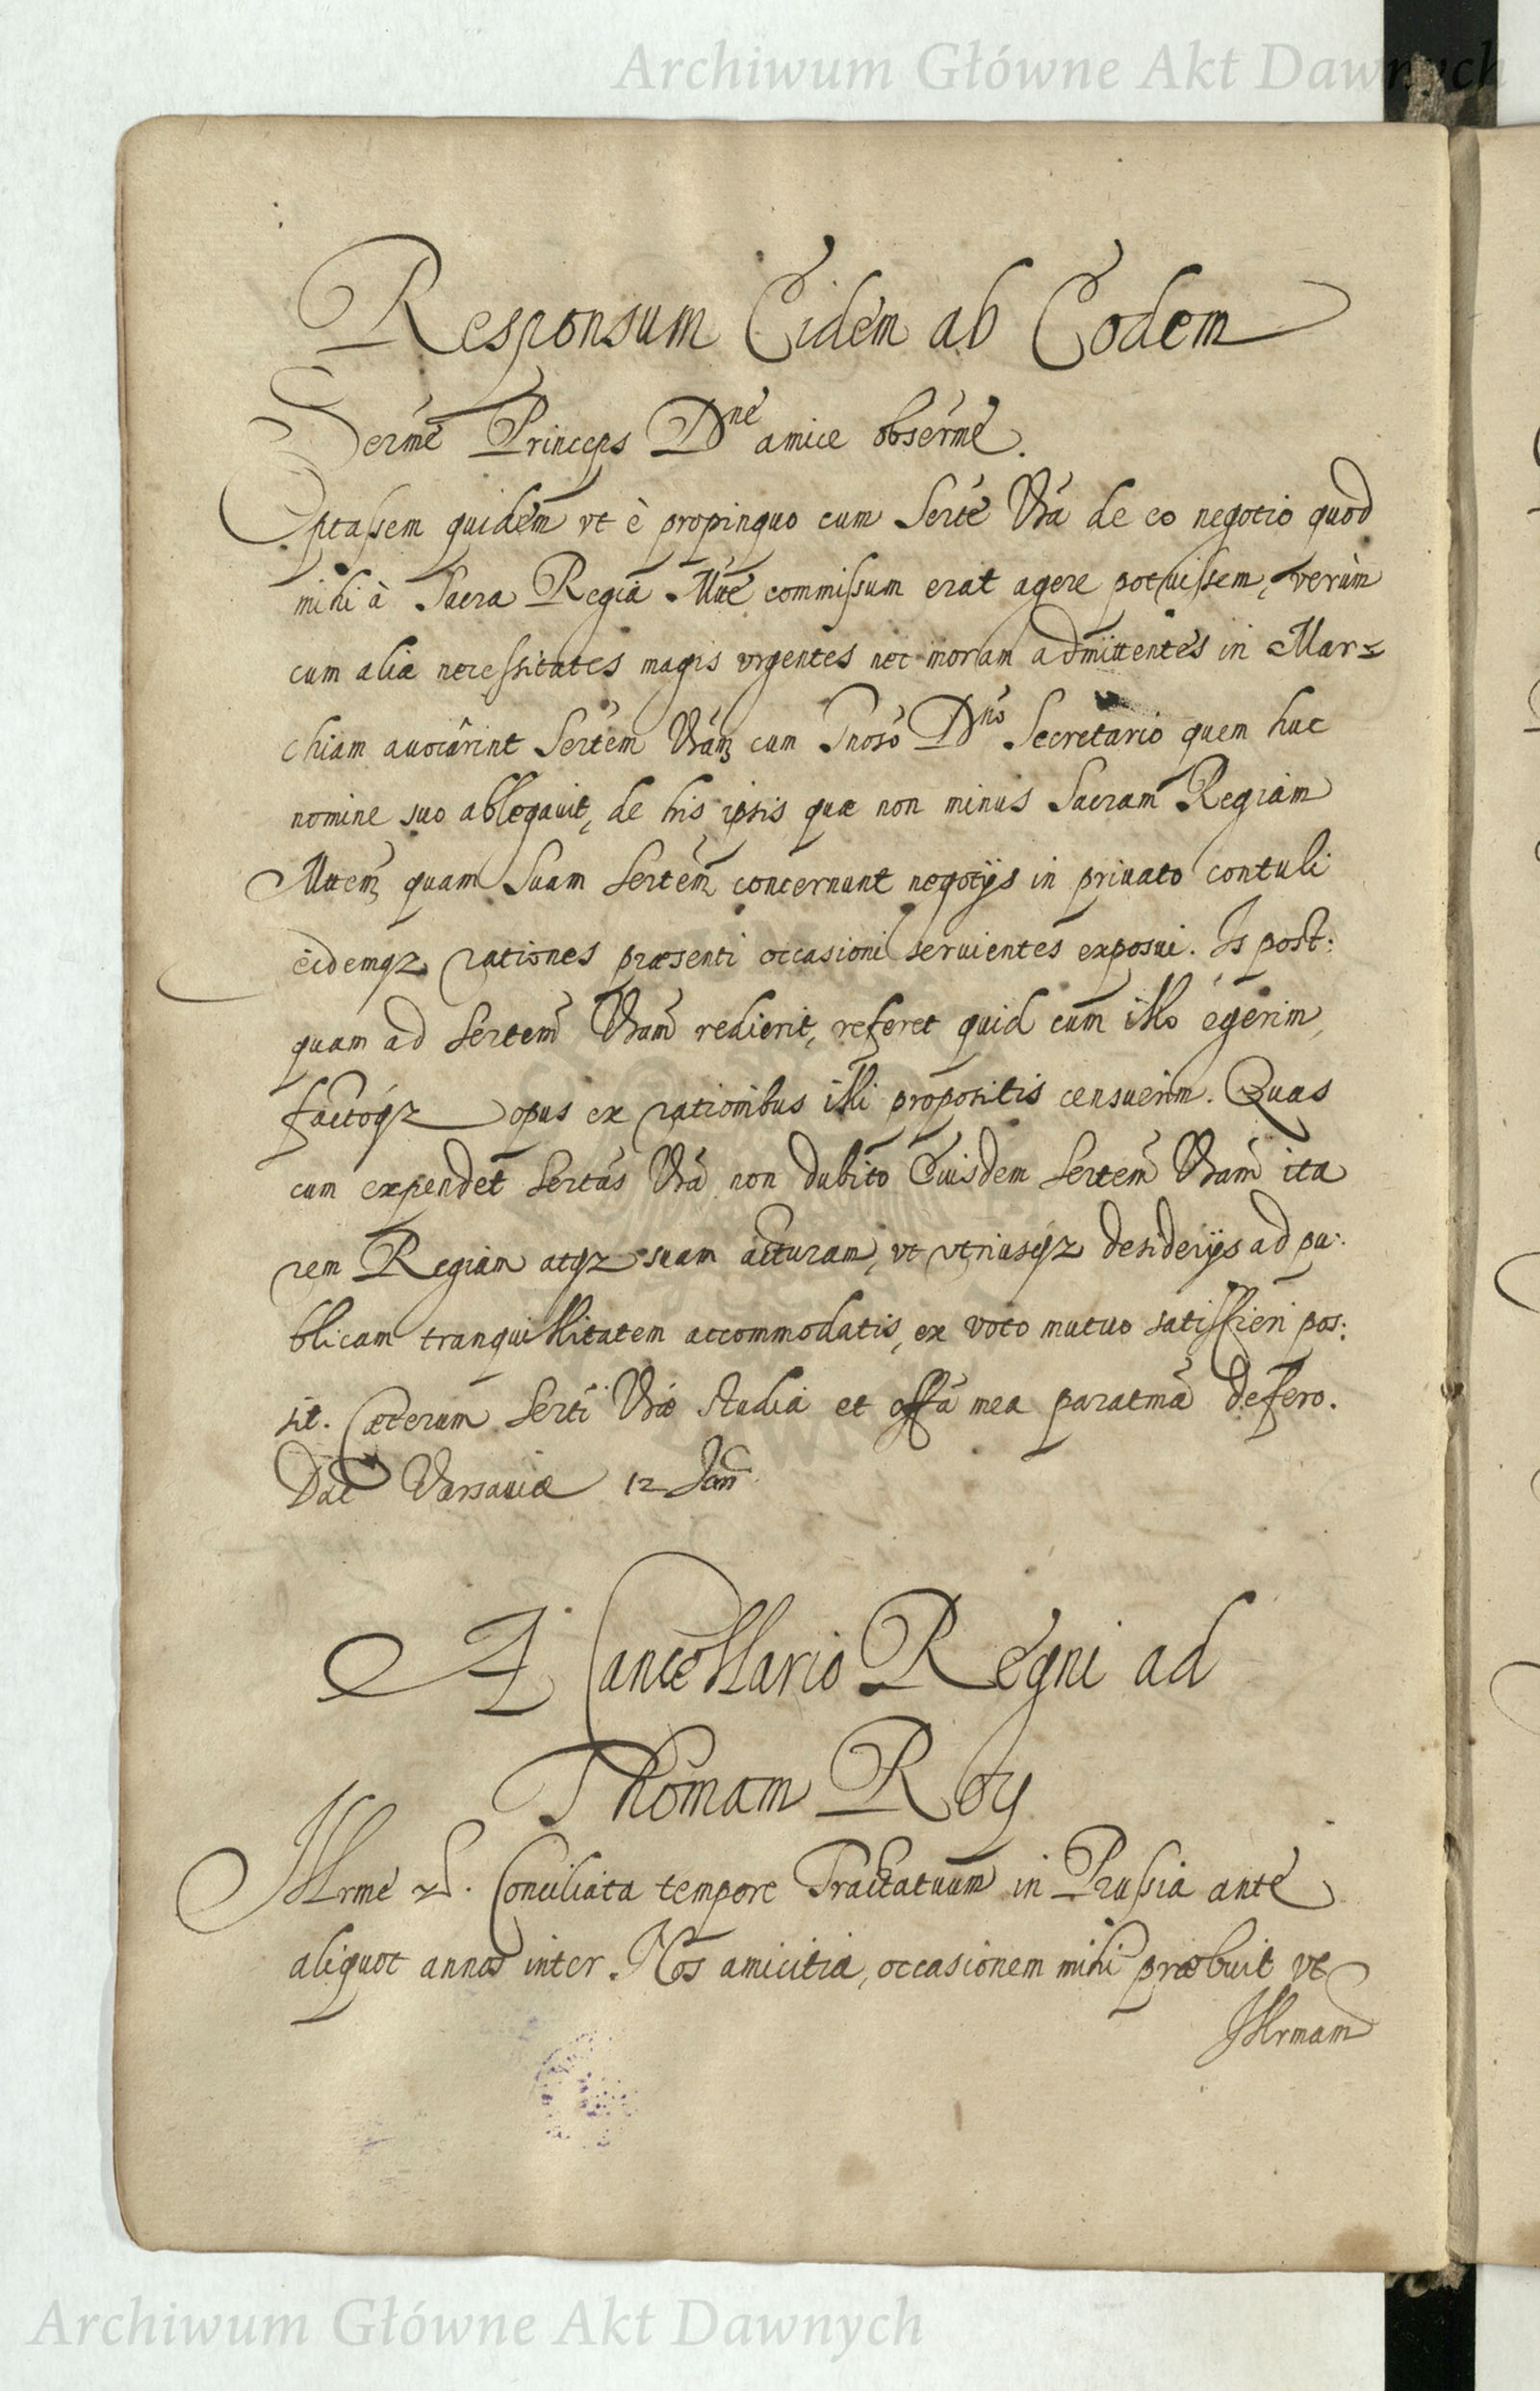 Archiwum Główne Akt Dawnych
Responsum Eidem ab Eodem
Sermē Princeps Dne amice obsermē.
Optassem quidem vt è propinquo cum Serte Vrā de eo negotio quod
mihi à Sacra Regia Mtte commissum erat agere potuissem, verùm
cum aliæ necessitates magis vrgentes nec moram admittentes in Mar=
chiam auocârint Sertem Vram cum Gnoso Dno Secretario quem huc
nomine suo ablegauit, de his ipsis quæ non minus Sacram Regiam
Mttem quam Suam Sertem concernunt negotijs in priuato contuli
eidemqz rationes præsenti occasioni seruientes exposui. Is post:
quam ad Sertem Vram redierit, referet quid cum illo egerim,
factoqz opus ex rationibus illi propositis censuerim. Quas
cum expendet Sertas Vra non dubito Eiusdem Sertem Vram ita
rem Regiam atqz suam acturam, vt vtriusqz desiderijs ad pu:
blicam tranquillitatem accommodatis, ex voto mutuo satisfieri pos:
sit. Cæterum Serti Vræ studia et offa mea paratma defero.
Dat Varsauiæ 12 Jan
A Cancellario Regni ad
Thomam Roy
Illrme Conciliata tempore Tractatuum in Prussia ante
aliquot annos inter Nos amicitia, occasionem mihi præbuit vt
Illrmam
Archiwum Główne Akt Dawnych